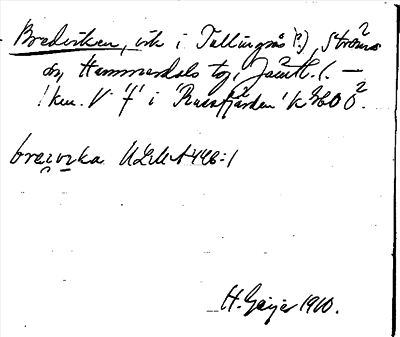 Bredviken, vik i Tullingsås (?), Ströms
sn, Hammerdals tg, Jämtl. l. –
1 km. V 'f' i 'Russfjärden' K 56O Ö².
brèɪvɪka ULMA 446:1
H. Geijer 1910.